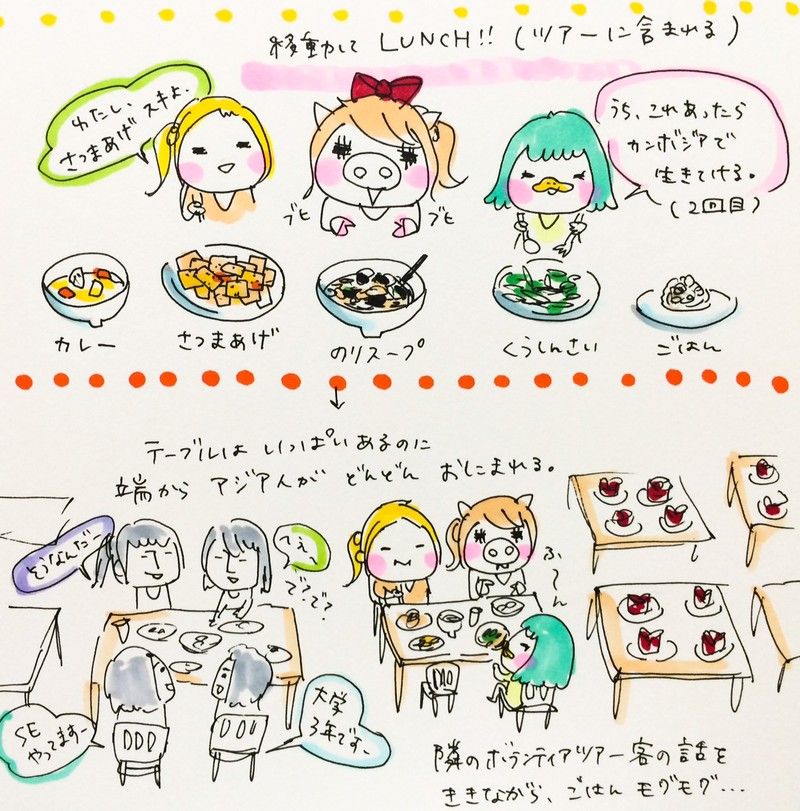 移動して LUNCH!! (ツアーに含まれる)
わたし、
さつまあげ スキよ.
うち、これあったら
カンボジアで
生きてける。
(2回目)
ブヒ
ブヒ
カレー
さつまあげ
のりスープ
くうしんさい
ごはん
テーブルは いっぱいあるのに
端から アジア人が どんどん おしこまれる。
そうなんだー
へぇ
で?で?
ふーん
SE
やってますー
大学
3年ですー
隣のボランティアツアー客の話を
ききながら、ごはん モグモグ...